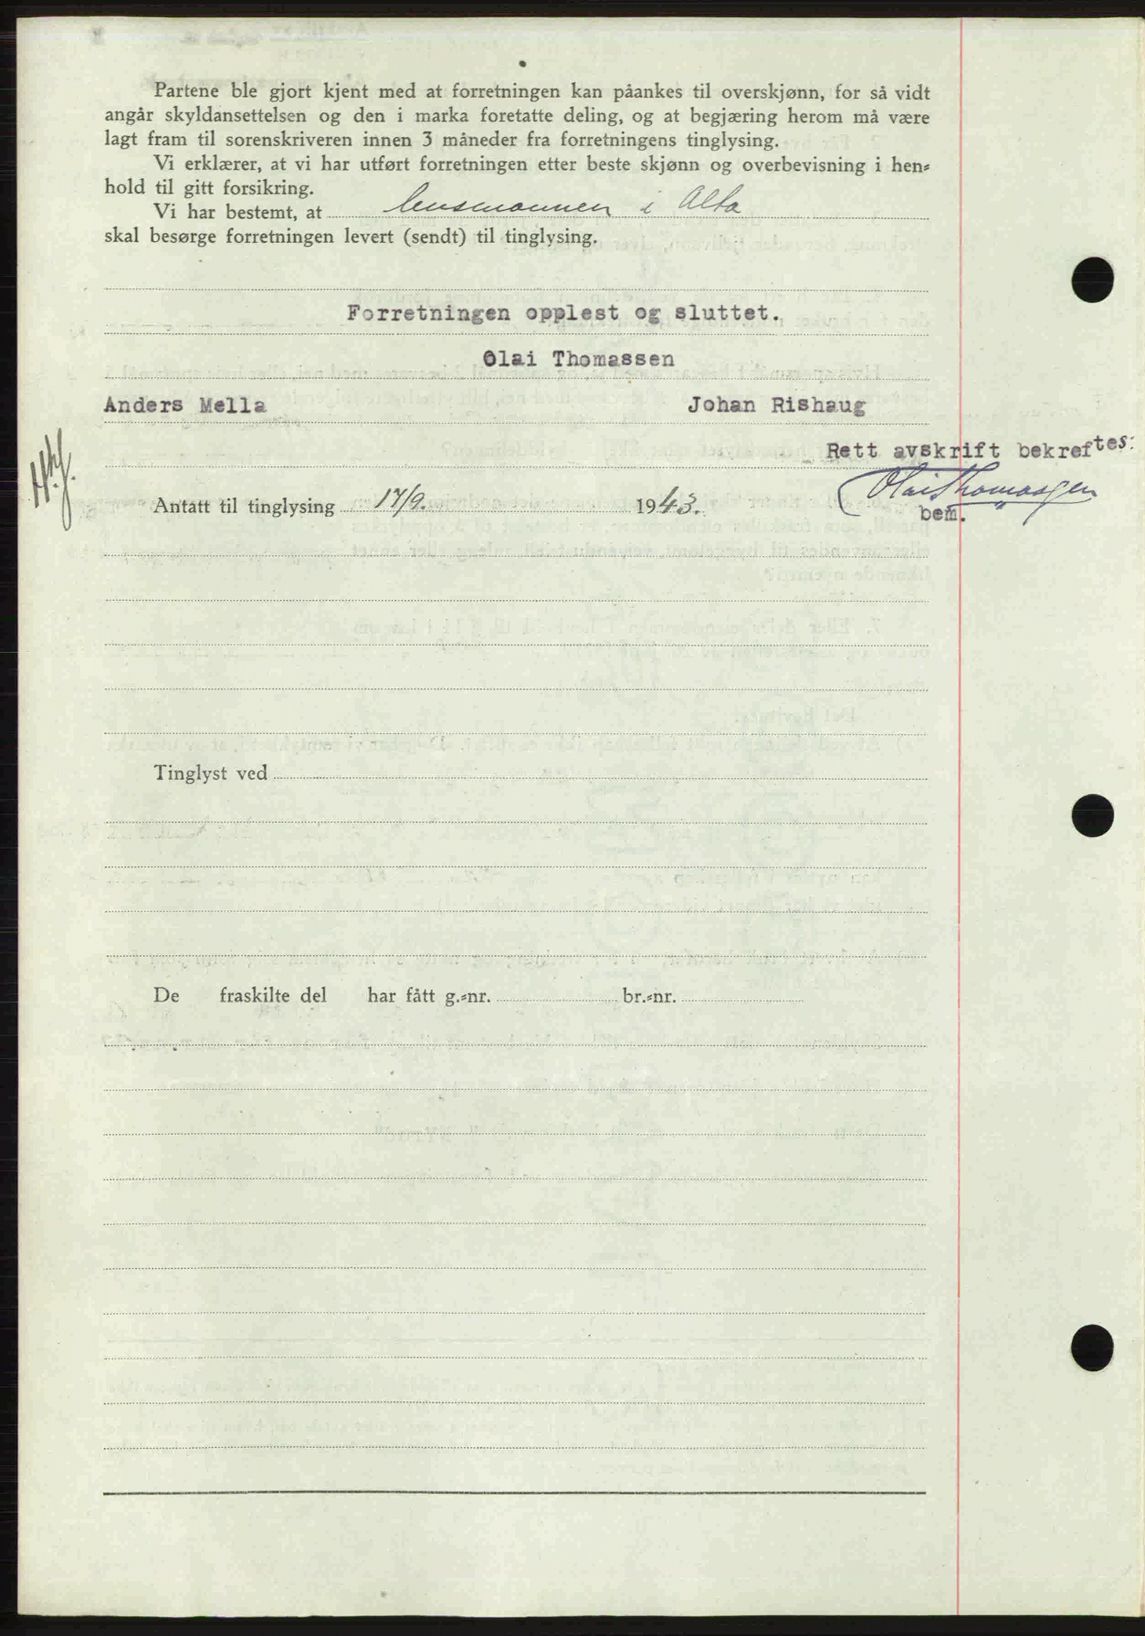 Partene ble gjort kjent med at forretningen kan påankes til overskjønn, for så vidt
angår skyldansettelsen og den i marka foretatte deling, og at begjæring herom må være
lagt fram til sorenskriveren innen 3 måneder fra forretningens tinglysing.
Vi erklærer, at vi har utført forretningen etter beste skjønn og overbevisning i hen-
hold til gitt forsikring.
Vi har bestemt, at lensmannen i Alta
skal besørge forretningen levert (sendt) til tinglysing.
Forretningen opplest og sluttet.
Olai Thomassen
Anders Mella Johan Rishaug
Rett avskrift bekreftes:
Olai Thomassen
Antatt til tinglysing 17/9. 1943.
bem.
Tinglyst ved
De fraskilte del har fått g.-nr. br.-nr.